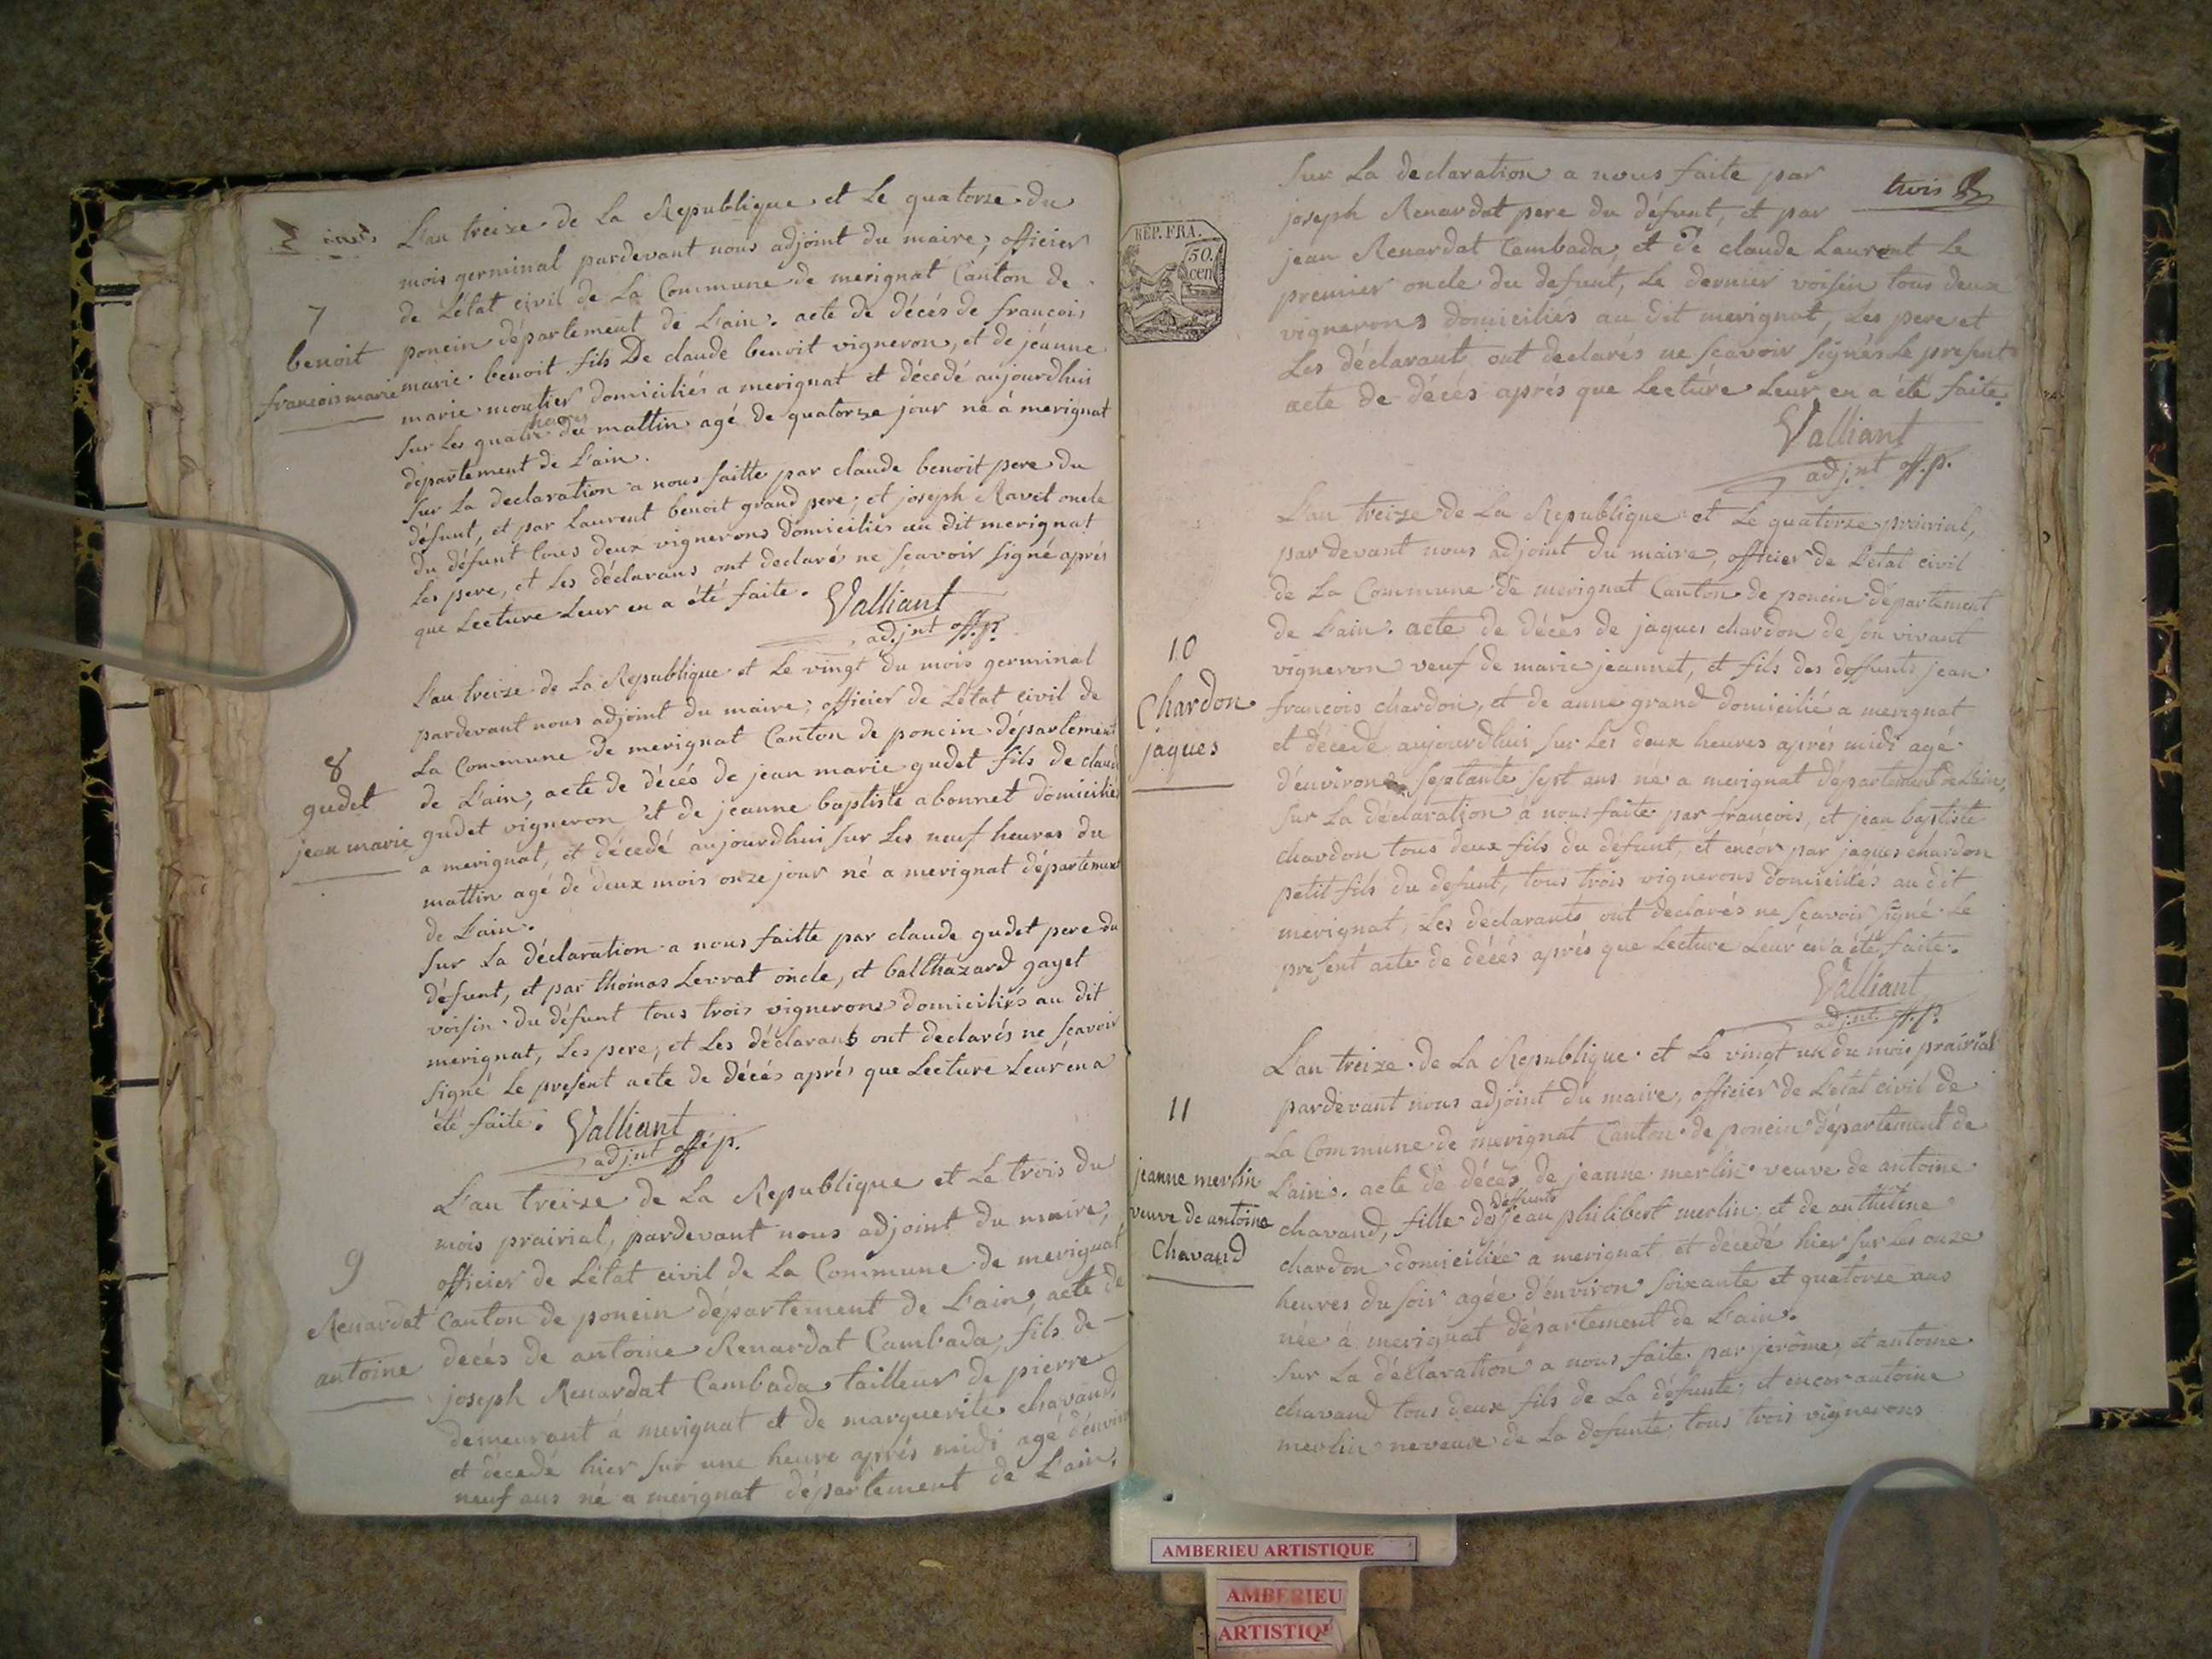 L'an treize de La Republique et Le quatorze du
mois germinal pardevant nous adjoint du maire, officier
de L'état civil de La Commune de merignat Canton de
7
poncin département de L'ain. acte de décés de francois
benoit
marie benoit fils De claude benoit vigneron, et de jeanne
francois marie
marie moutier domiciliés a merignat et décedé aujourdhui
heures
sur Les quatre du mattin agé de quatorze jour né à merignat
département de L'ain.
sur La declaration a nous faitte par claude benoit pere du
défunt, et par Laurent benoit grand pere, et joseph Ravet oncle
du défunt tous deux vignerons domiciliés au dit merignat
Les pere, et Les déclarans ont declarés ne scavoir signé aprés
que Lecture Leur en a été faite. Valliant
adjnt off.p.
L'an treize de La Republique et Le vingt du mois germinal
pardevant nous adjoint du maire, officier de L'état civil de
La Commune de merignat Canton de poncin département
8
de L'ain, acte de décés de jean marie gudet fils de claude
gudet
gudet vigneron et de jeanne baptiste abonnet domiciliés
jean marie
a merignat, et décedé aujourdhui sur Les neuf heures du
mattin agé de deux mois onze jour né a merignat département
de L'ain.
sur La déclaration a nous faitte par claude gudet pere du
défunt, et par thomas Lerrat oncle, et balthazard gayet
voisin du défunt tous trois vignerons domiciliés au dit
merignat, Les pere, et Les déclarans ont declarés ne scavoir
signé Le present acte de décés aprés que Lecture Leur en a
été faite. Valliant
adjnt off. p.
L'an treize de La Republique et Le trois du
mois prairial, pardevant nous adjoint du maire,
officier de L'état civil de La Commune de merignat
9
Canton de poncin département de L'ain, acte de
Renardat
decés de antoine Renardat Cambada, fils de
antoine
joseph Renardat Cambada tailleur de pierre
demeurant à merignat et de marguerite chavand
et décedé hier sur une heure aprés midi agé d'environ
neuf ans né a merignat département de L'ain.
trois
RÉP. FRA.
50.
cen
Sur La declaration a nous faite par
joseph Renardat pere du défunt, et par
jean Renardat Cambada, et de claude Laurent Le
premier oncle du defunt, Le dernier voisin tous deux
vignerons domiciliés au dit merignat, Les pere et
Les déclarant ont declarés ne scavoir signés Le present
acte de décés aprés que Lecture Leur en a été faite.
Valliant
adjnt off.p.
L'an treize de La Republique et Le quatorze prairial,
par devant nous adjoint du maire, officier de L'état civil
de La Commune de merignat Canton de poncin département
de L'ain. acte de décés de jaques chardon de son vivant
10
vigneron veuf de marie jeannet, et fils des deffunts jean
Chardon
francois chardon, et de anne grand domicilié a merignat
jaques
et décedé aujourdhui sur Les deux heures aprés midi agé
d'environ septante sept ans né a merignat département de L'ain,
sur La déclaration à nous faite par francois, et jean baptiste
chardon tous deux fils du défunt, et encor par jaques chardon
petit fils du defunt, tous trois vignerons domiciliés au dit
merignat, Les déclarants ont declarés ne scavoir signé Le
present acte de décés aprés que Lecture Leur en a été faite.
Valliant
adjnt off.p.
L'an treize de La Republique et Le vingt un du mois prairial
pardevant nous adjoint du maire, officier de L'état civil de
11
La Commune de merignat Canton de poncin département de
jeanne merlin
L'ain. acte de décés de jeanne merlin veuve de antoine
deffunts
veuve de antoine
chavand, fille des jean philibert merlin et de anthelme
Chavand
chardon domiciliée a merignat et decedé hier sur Les onze
heures du soir agée d'environ soixante et quatorze ans
née à merignat département de L'ain.
sur La déclaration a nous faite par jerôme, et antoine
chavand tous deux fils de La défunte, et encor antoine
merlin neveux de La defunte tous trois vignerons
AMBERIEU ARTISTIQUE
AMBERIEU
ARTISTIQU